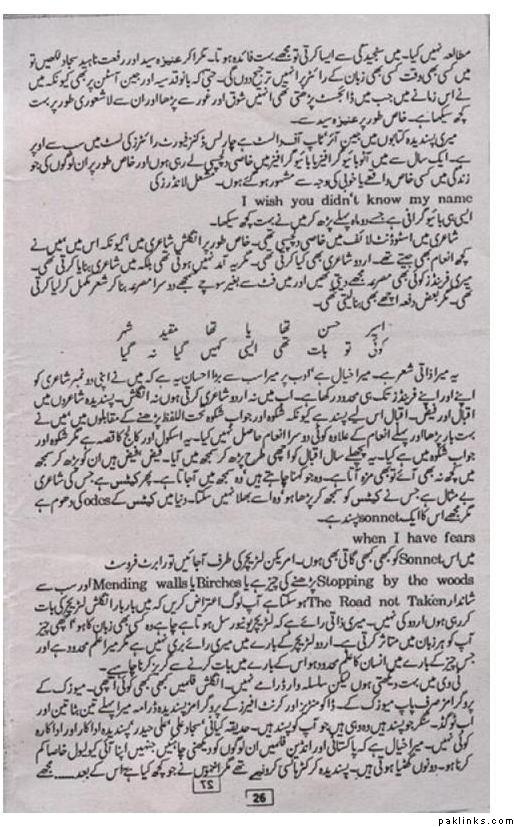 مطالعہ نہیں کیا۔ میں سنجیدگی سے ایسا کرتی تو مجھے بہت فائدہ ہوتا۔ مگر اکر عنیزہ سید اور رفعت ناہید سجاد لکھیں تو
میں کسی بھی وقت کسی بھی زبان کے رائٹر پر انہیں ترجیح دوں گی۔ حتیٰ کہ بانو قدسیہ اور جین آسٹن پر بھی کیونکہ میں
نے اس زمانے میں جب میں ڈائجسٹ پڑھتی تھی انہیں شوق اور غور سے پڑھا اور ان سے لاشعوری طور پر بہت
کچھ سیکھا ہے۔ خاص طور پر عنیزہ سید سے۔
میری پسندیدہ کتابوں میں جین آئر ٹاپ آف دا لسٹ ہے چارلس ڈکنز فیورٹ رائٹرز کی لسٹ میں سب سے اوپر
ہے۔ ایک سال سے میں آٹو بائیو گرافیز یا بائیو گرافیز میں خاصی دلچسپی لے رہی ہوں اور خاص طور پر ان لوگوں کی جو
زندگی میں کسی خاص واقعے یا خوبی کی وجہ سے مشہور ہو گئے ہوں۔ لانڈرز کی
I wish you didn't know my name
ایسی ہی بائیو گرافی ہے جسے دو ماہ پہلے پڑھ کر میں نے بہت کچھ سیکھا۔
شاعری میں اسٹوڈنٹ لائف میں خاصی دلچسپی تھی۔ خاص طور پر انگلش شاعری میں کیونکہ اس میں میں نے
کچھ انعام بھی جیتے تھے۔ اردو شاعری بھی کیا کرتی تھی۔ مگر یہ آمد نہیں ہوتی تھی بلکہ میں شاعری بنایا کرتی تھی۔
میری فرینڈز کوئی بھی مصرعہ مجھے دیتی تھیں اور میں فٹ سے بغیر سوچے سمجھے دوسرا مصرعہ بنا کر شعر مکمل کر لیا کرتی
تھی۔ مگر بعض دفعہ اچھے بھی بنا لیتی تھی۔
اسیر حسن تھا یا تھا مقید شہر
کوئی تو بات تھی ایسی کہیں گیا نہ گیا
یہ میرا ذاتی شعر ہے۔ میرا خیال ہے ادب پر میرا سب سے بڑا احسان یہ ہے کہ میں نے اپنی دو نمبر شاعری کو
اپنے اور اپنے فرینڈز تک ہی محدود رکھا ہے۔ اب میں نہ اردو شاعری کرتی ہوں نہ انگلش۔ پسندیدہ شاعروں میں
اقبال اور فیض۔ اقبال اس لیے پسند ہے کیونکہ شکوہ اور جواب شکوہ تحت اللفظ پڑھنے کے مقابلوں میں میں نے
بہت بار پڑھا اور پہلے انعام کے علاوہ کوئی دوسرا انعام حاصل نہیں کیا۔ یہ اسکول اور کالج کا قصہ ہے مگر شکوہ اور
جواب شکوہ میں ہے کیا۔ یہ پچھلے سال اقبال کو اچھی طرح پڑھ کر سمجھ میں آیا۔ فیض فیض ہیں ان کو پڑھ کر سمجھ
میں کچھ نہ بھی آئے تو بھی مزہ آتا ہے۔ وہ جو کہنا چاہتے ہیں وہ سمجھ میں آ جاتا ہے۔ پھر کیٹس ہے جس کی شاعری
بے مثال ہے جس نے کیٹس کو سمجھ کر پڑھا ہو وہ اسے بھلا نہیں سکتا۔ دنیا میں کیٹس کے odes کی دھوم ہے
مگر مجھے اس کا ایک sonnet پسند ہے۔
when I have fears
میں اس Sonnet کو کبھی کبھی گاتی بھی ہوں۔ امریکن لٹریچر کی طرف آ جائیں تو رابرٹ فروسٹ
Stopping by the woods پڑھنے کی چیز ہے یا Birches یا Mending walls اور سب سے
شاندار The Road not Taken ہو سکتا ہے آپ لوگ اعتراض کریں کہ میں بار بار انگلش لٹریچر کی بات
کر رہی ہوں اردو کی نہیں۔ میری ذاتی رائے ہے کہ لٹریچر یونیورسل ہوتا ہے چاہے وہ کسی بھی زبان کا ہو اچھی چیز
آپ کو ہر زبان میں متاثر کرتی ہے۔ اردو لٹریچر کے بارے میں میری رائے بری نہیں ہے مگر میرا علم محدود ہے اور
جس چیز کے بارے میں انسان کا علم محدود ہو اس کے بارے میں بات کرنے سے گریز کرنا چاہے۔
ٹی وی میں بہت دیکھتی ہوں لیکن سلسلہ وار ڈرامے نہیں۔ انگلش فلمیں کبھی کبھی کوئی اچھی۔ میوزک کے
پروگرامز صرف پاپ میوزک کے۔ ڈاکومنٹریز اور کرنٹ افیرز کے پروگرام پسندیدہ ڈرامہ میرا پہلے تین بٹا تین اور
اب لوگڈ۔ سنگر جو پسند ہیں وہ وہی ہیں جو آپ کو پسند ہیں۔ حدیقہ کیانی سجاد علی علی حیدر پسندیدہ اداکار اور اداکارہ
کوئی نہیں۔ میرا خیال ہے کہ پاکستانی اور انڈین فلمیں ان لوگوں کو دیکھنی چاہئیں جنہیں اپنا آئی کیو لیول خاصا کم
کرنا ہو۔ دونوں گھٹیا ہوتی ہیں۔ پسندیدہ کرکٹر ہانسی کرونیے تھے مگر انہوں نے جو کچھ کیا ہے اس کے بعد ..... مجھے
26
paklinks.com